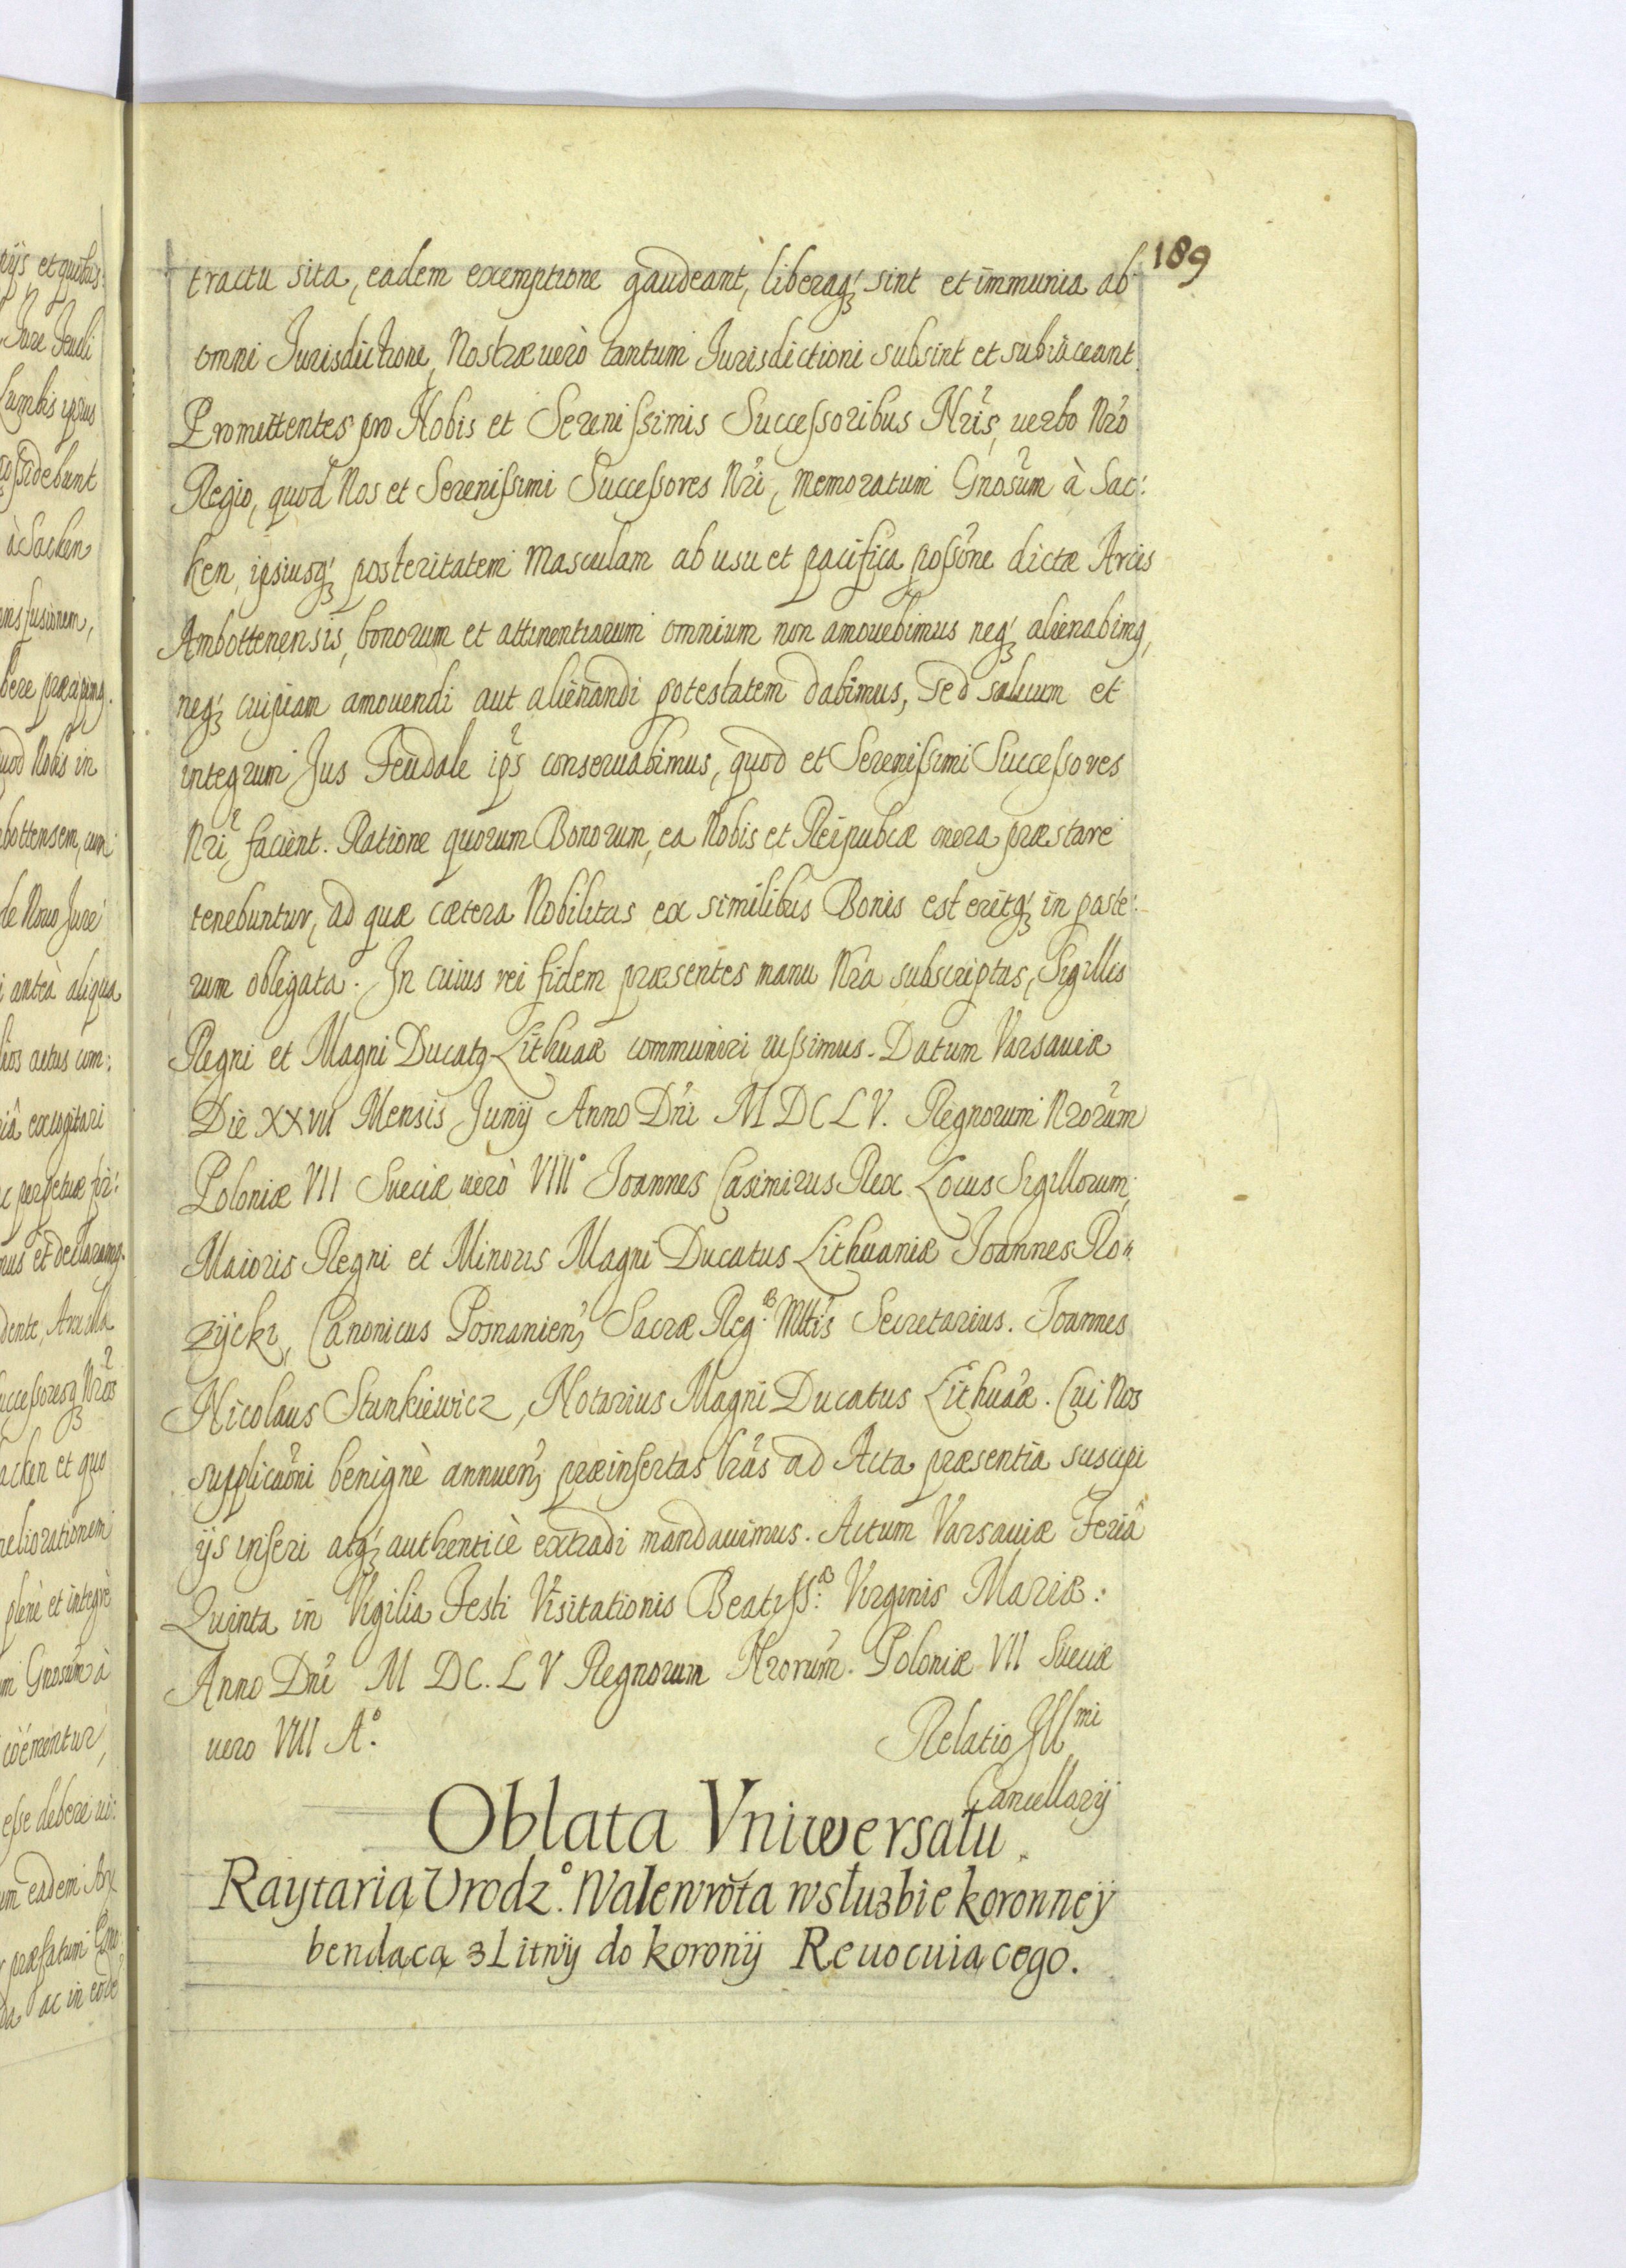 189
tractu sita, eadem exemptione gaudeant, liberaq́ʒ sint et immunia ab
omni Jurisdictione, Nostræ uerò tantum Jurisdictioni subsint et subiaceant.
Promittentes pro Nobis et Serenissimis Successoribus Nr̃is, uerbo Nr̃o
Regio, quod Nos et Serenissimi Successores Nr̃i, memoratum Gnosũm à Sac:
ken, ipsiusq́ʒ posteritatem masculam ab usu et pacifica possõne dictæ Arcis
Ambottenensis, bonorum et attinentiarum omnium non amouebimus neq́ʒ alienabimꝯ,
neq́ʒ cuipiam amouendi aut alienandi potestatem dabimus, sed saluum et
integrum Jus Feudale ip̃s conseruabimus, quod et Serenissimi Successores
Nr̃i facient. Ratione quorum Bonorum, ea Nobis et Reipubcæ onera præstare
tenebuntur, ad quæ cætera Nobilitas ex similibus Bonis est eritq́ʒ in poste:
rum obligata. In cuius rei fidem præsentes manu Nr̃a subscriptas, Sigillis
Regni et Magni Ducatꝯ Lithuãæ communiri iussimus. Datum Varsauiæ
Die XXVII Mensis Junij Anno Dñi MDCLV. Regnorum Nrorũm
Poloniæ VII Sueciæ uerò VIII° Joannes Casimirus Rex. Locus Sigillorum,
Maioris Regni et Minoris Magni Ducatus Lithuaniæ Joannes Ro=
zycki, Canonicus Posnanieñ, Sacræ Reg:æ Mttis Secretarius. Joannes
Nicolaus Stankiewicz, Notarius Magni Ducatus Lithuãæ. Cui Nos
supplicaõni benignè annueñ, præinsertas lr̃as ad Acta præsentia suscipi
ijs inseri atq́ʒ authenticè extradi mandauimus. Actum Varsauiæ Feriâ
Quinta in Vigilia Festi Visitationis Beatiss:æ Virginis Mariæ:
Anno Dñi M DC. L V Regnorum Nrorũm. Poloniæ VII Sueciæ
uero VIII A°.
Relatio Jllmi
Cancellarij
Oblata Vniwersału
Raytarią Vrodz.° Walenrota w słuzbie koronney
bendacą z Litwy do korony Reuocuiącego.